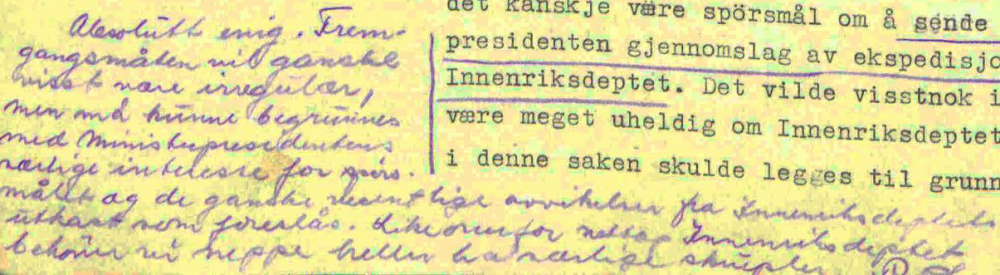 det kanskje være spörsmål om å sende
presidenten gjennomslag av ekspedisjo
Innenriksdeptet. Det vilde visstnok i
være meget uheldig om Innenriksdeptet
i denne saken skulde legges til grunn
Absolutt enig. Frem-
gangsmåten vil ganske
visst være irregulær,
men må kunne begrunnes
med Ministerpresidentens
særlige interesse for spørs-
målet og de ganske vesentlige avvikelser fra Innenriksdeptets
utkast som foreslås. Likeoverfor nettop Innenriksdeptet
behøver vi neppe heller ha særlige skrupler